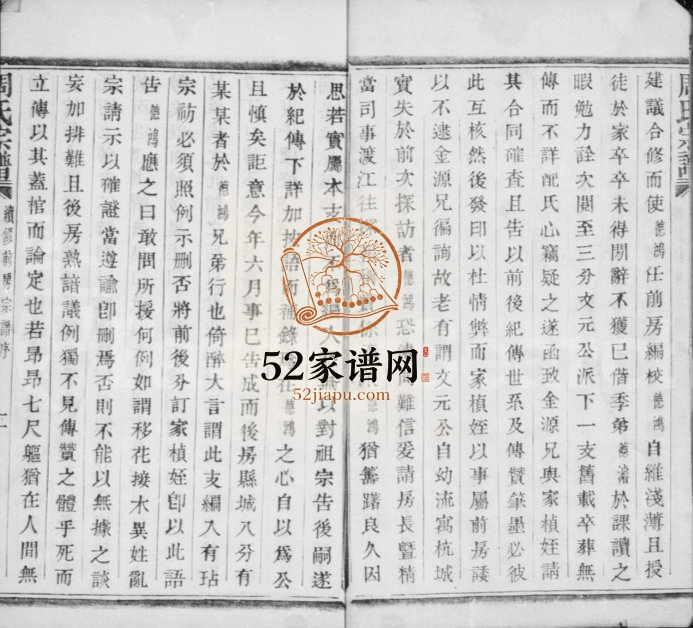 周氏宗譜
建議合修而使德鴻任前房編校德鴻自維淺薄且授
徒於家卒卒未得閒辭不獲已偕季弟於課讀之
暇勉力詮次閱至三分文元公派下一支舊載卒葬無
傳而不詳配氏心竊疑之遂函致金源兄與家楨姪請
其合同確查且告以前後紀傳世系及傳贊筆墨必彼
此互核然後發印以杜情弊而家楨姪以事屬前房諉
以不逮金源兄徧詢故老有謂文元公自幼流寓杭城
實失於前次採訪者德鴻恐難信爰請房長暨精
當司事渡江往猶籌躇良久因
思若實屬本支以對祖宗告後嗣遂
於紀傳下詳加按語而補錄德鴻之心自以爲公
且愼矣詎意今年六月事已告成而後房縣城八分有
某某者於德鴻兄弟行也倚醉大言謂此支編入有玷
宗祊必須照例示刪否將前後分訂家楨姪卽以此語
告德鴻應之曰敢問所援何例如謂移花接木異姓亂
宗請示以確證當遵諭卽刪焉否則不能以無據之談
妄加排難且後房熟諳議例獨不見傳贊之體乎死而
立傳以其蓋棺而論定也若昂昂七尺軀猶在人間無
周氏宗譜
續修前房宗譜序
52家谱网
52jiapu.com